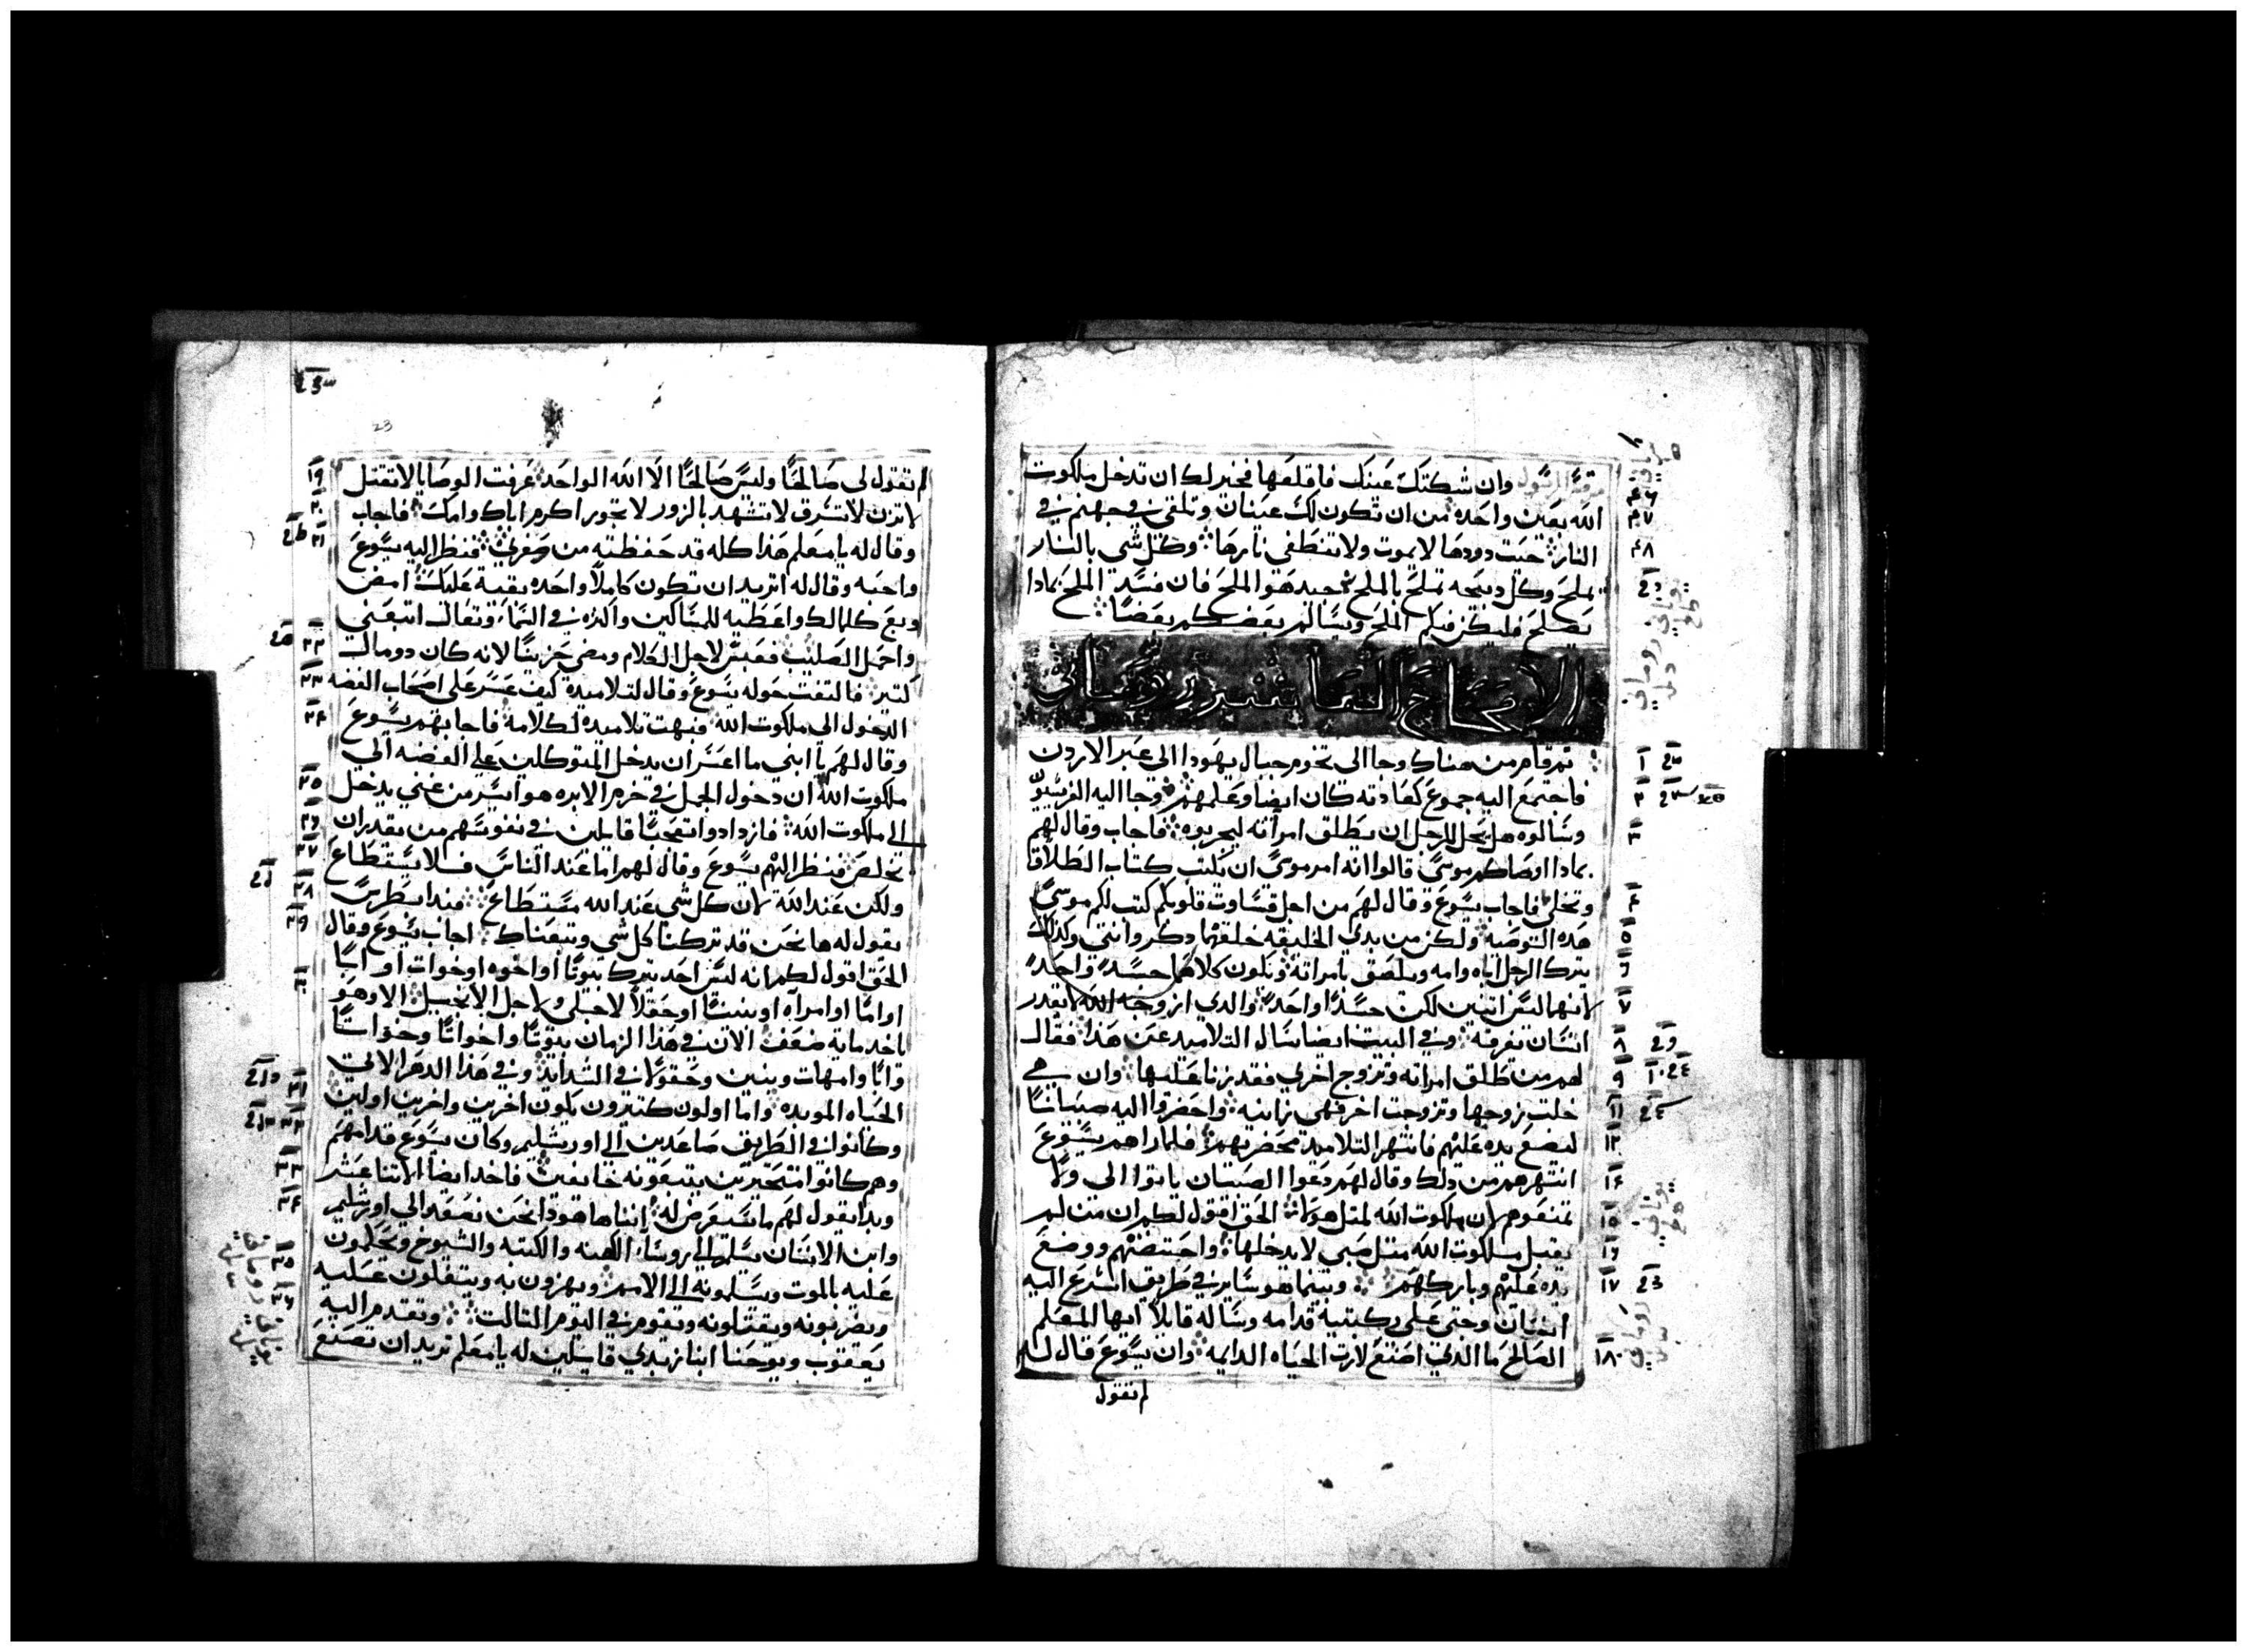 مرقس الرسول وان شككتك عينك فاقلعها فخير لك ان تدخل ملكوت
الله بعين واحده من ان تكون لك عينان وتلقى في جهنم في
النار حيت دودها لا يموت ولا تنطفى نارها وكل شي بالنار
يملح وكل دبيحه تملح بالملح جيد هو الملح فان فسد الملح بمادا
يصلح فليكن فيكم الملح ويسالم بعضكم بعضا
الاصحاح العاشر
تم قام من هناك وجا الى تخوم جبال يهودا الى عبر الاردن
فاجتمع اليه جموع كعادته كان ايضا وعلمهم وجا اليه الفريسيون
وسالوه هل يحل للرجل ان يطلق امراته ليجربوه فاجاب وقال لهم
بمادا اوصاكم موسى قالوا انه امر موسى ان نكتب كتاب الطلاق
وتخلى فاجاب يسوع وقال لهم من اجل قساوت قلوبكم كتب لكم موسى
هده التوصيه ولكن من بدي الخليقه خلقهما دكر وانتى وكدلك
يترك الرجل اباه وامه ويلصق بامراته ويكون كلاهما جسدا واحدا
لانهما ليس اتنين لكن جسدا واحدا والدي ازوجه الله لا يقدر
انسان تفرقه وفي البيت ايضا سال التلاميد عن هدا فقال
لهم من طلق امراته وتزوج اخري فقد زنا عليها وان هي
خلت زوجها وتزوجت اخر فهي زانيه واحضروا اليه صبيانا
ليضع يده عليهم فانتهر التلاميد محضريهم فلما راهم يسوع
انتهرهم من دلك وقال لهم دعوا الصبيان ياتوا الى ولا
تمنعوهم لان ملكوت الله لمتل هولا الحق اقول لكم ان من لم
يقبل ملكوت الله متل صبي لا يدخلها واحتضنهم ووضع
يده عليهم وباركهم وبينما هو ساير في طريق اسرع اليه
انسان وحتى على ركبتيه قدامه وساله قايلا ايها المعلم
الصالح ما الدي اصنع لارت الحياه الدايمه وان يسوع قال له
لم تقول
لم تقول لى صالحا وليس صالحا الا الله الواحد عرفت الوصايا لا تقتل
لا تزن لا تسرق لا تشهد بالزور لا تجور اكرم اباك وامك فاجاب
وقال له يا معلم هدا كله قد حفظته من صغري فنظر اليه يسوع
واحبه وقال له اتريد ان تكون كاملا واحده بقية عليك امض
وبع كلمالك واعطيه للمساكين واكنزه في السما وتعال اتبعني
واحمل الصليب فعبس لاجل الكلام ومضي حزينا لانه كان دو مال
كتير فالتفت حوله يسوع وقال لتلاميده كيف عسر على اصحاب الفضه
الدخول الى ملكوت الله فبهت تلاميده لكلامه فاجابهم يسوع
وقال لهم يا ابني ما اعسر ان يدخل المتوكلين علي الفضه الي
ملكوت الله ان دخول الجمل في خرم الابره هو ايسر من غني يدخل
الى ملكوت الله فازدادوا تعجبا قايلين في نفوسهم من يقدر ان
يخلص فنظر اليهم يسوع وقال لهم اما عند الناس فلا يستطاع
ولكن عند الله لان كل شي عند الله مستطاع فبدا بطرس
يقول له ها نحن قد تركنا كل شي وتبعناك اجاب يسوع وقال
الحق اقول لكم انه ليس احد يترك بيوتا او اخوه او خوات او ابا
او اما او امراه او بنينا او حقلا لاجلى ولاجل الانجيل الا وهو
ياخد مايه ضعف الان في هدا الزمان بيوتا واخوانا وخواتا
وابا وامهات وبنين وحقولا في الشدايد وفي هدا الدهر الاتي
الحياه الموبده واما اولون كتيرون يكون اخرين واخرين اولين
وكانوا في الطريق صاعدين الى اورشليم وكان يسوع قدامهم
وهم كانوا متحيرين يتبعونه خايفين فاخد ايضا الاتنا عشر
وبدا يقول لهم ما سيعرض له اننا ها هودا نحن نصعد الي اورشليم
وابن الانسان يسلم الي روسا الكهنه والكتبه والشيوخ ويحكمون
عليه بالموت ويسلمونه الى الامم ويهزون به ويتفلون عليه
ويضربونه ويقتلونه ويقوم في اليوم التالت وتقدم اليه
يعقوب ويوحنا ابنا زبدي قايلين له يا معلم نريد ان تصنع